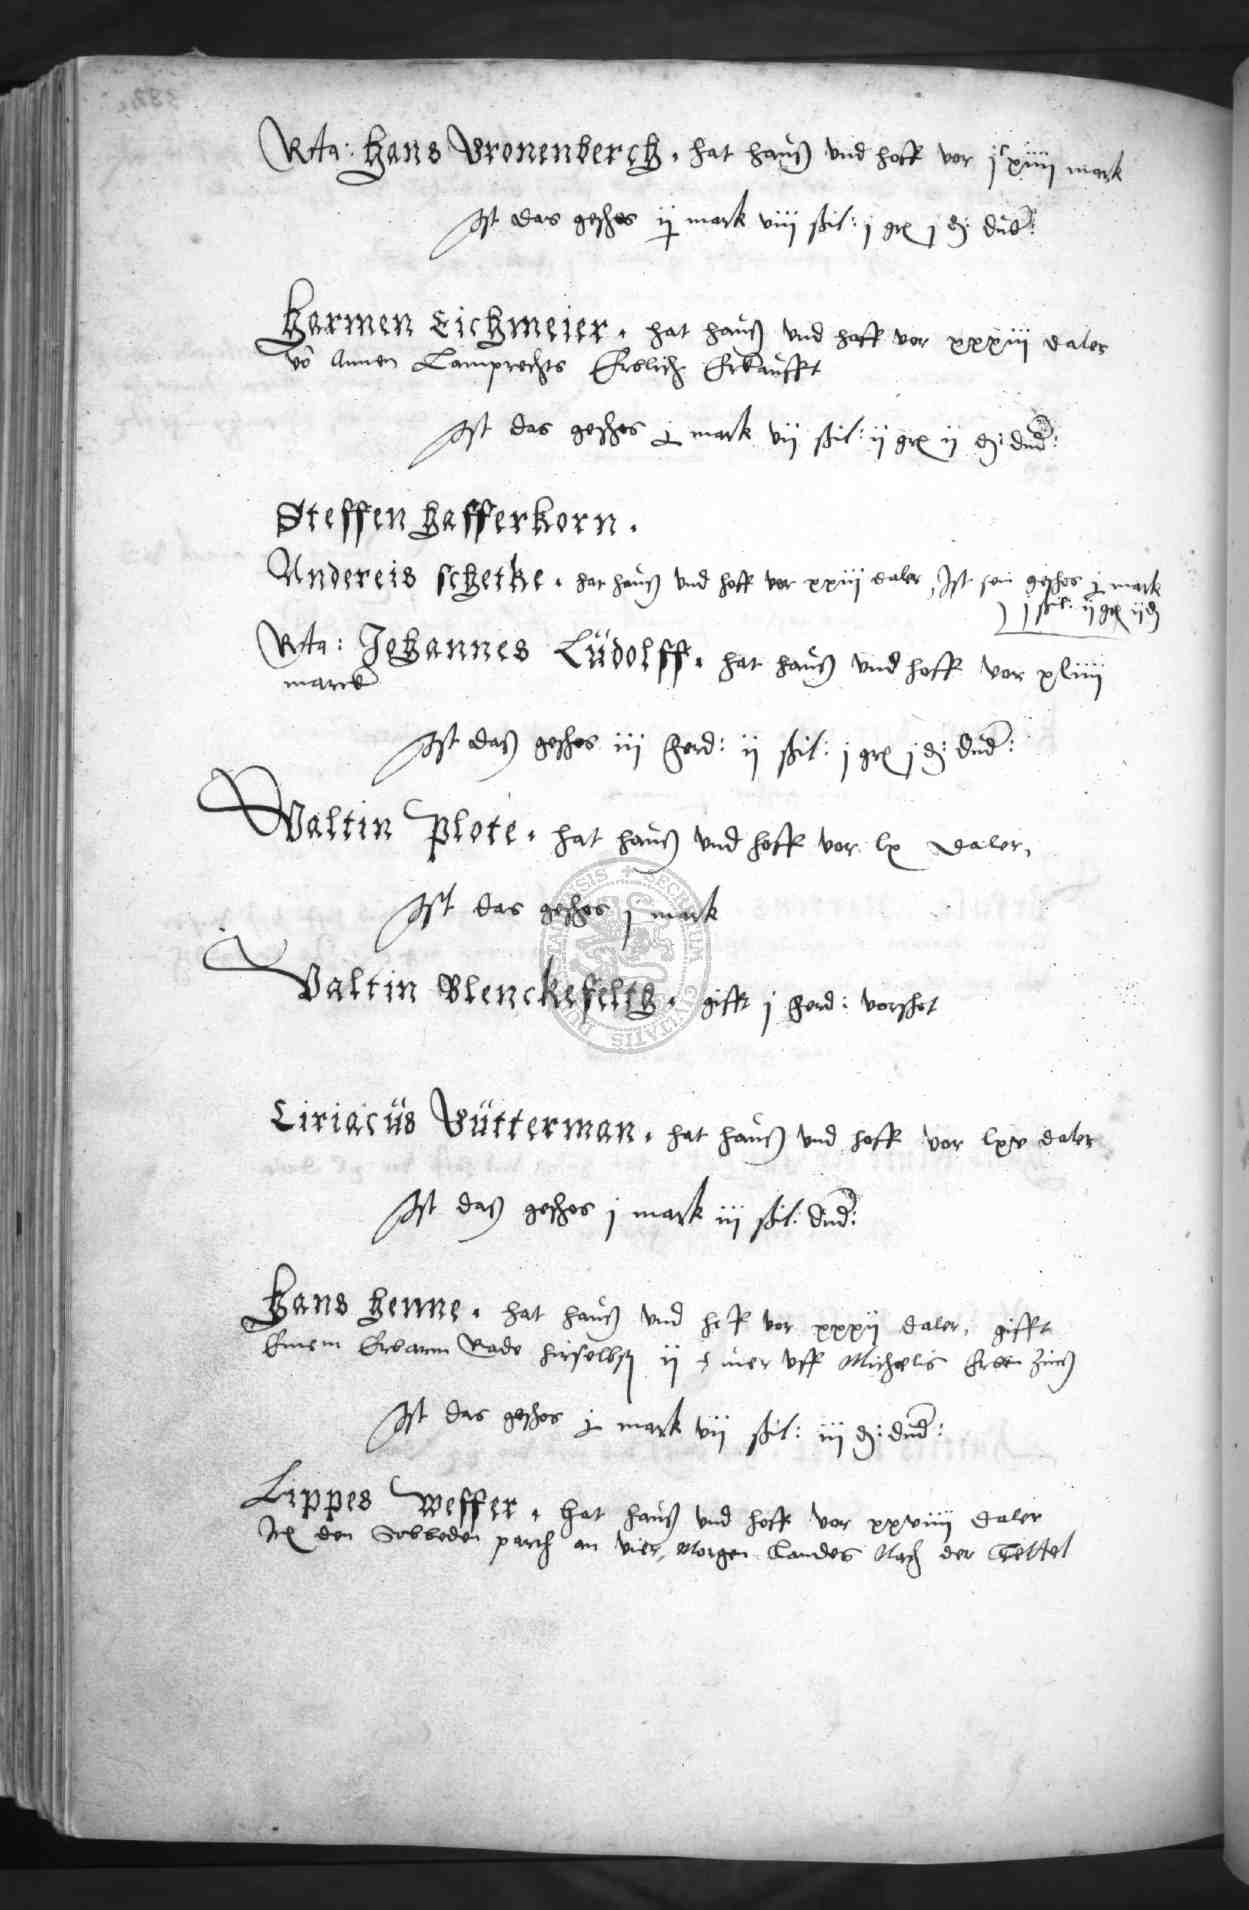 Rta: Hans Vronenberch . hat hauß vnd hoff vor jc xiiii mark
Ist das geschos ij mark viii ßil: j gr j d: dud:
Harmen Eichmeier . hat hauß vnd hoff vor xxxiii daler
vō Annen Lamprechts Erblich Erkaufft
Ist das geschos j mark vij ßil: ij gr ij d: dud:
Steffen Hafferkorn .
Andereis schetke . hat hauß vnd hoff vor xxiii daler, Ist sein geschos j mark
j ßil: ij gr ij d
Rta: Johannes Lüdolff . hat hauß vnd hoff vor xliiii
marck
Ist daß geschos iii ferd: ij ßil: j gr j d: dud:
Valtin Plote . hat hauß vnd hoff vor lx daler,
Ist das geschos j mark
Valtin Blenckefelth . gifft j ferd: vorschot
Ciriacüs Vütterman . hat hauß vnd hoff vor lxv daler
Ist daß geschos j mark iii ßil: dud:
Hans Henne . hat hauß vnd hoff vor xxxij daler, gifft
Einem Erbarm Rade hirselbst ij uff Michaelis Erben Zinß
Ist das geschos j mark vij ßil: iii d: dud:
Lippes Weffer . hat hauß vnd hoff vor xxviiii daler
den parch an vier Morgen Landes Nach der